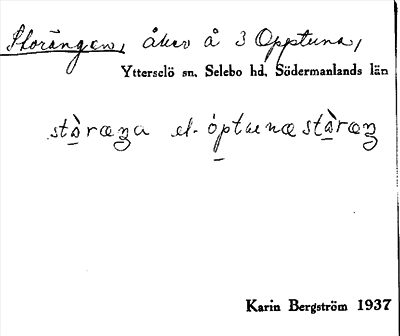 Storängen, åker å 3 Opptuna,
Ytterselö sn, Selebo hd, Södermanlands län
stàræŋa el. óptunæstàræŋ
Karin Bergström 1937